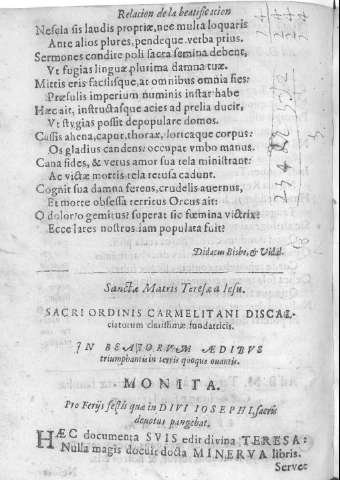 Relacion de la beatificacion
Nescia sis laudis propriæ, nec multa loquaris
Ante alios plures, pendeque verba prius.
Sermones condire poli sacra semina debent,
Vt fugias linguæ, plurima damna tuæ.
Mittis eris facilisque, at omnibus omnia fies:
Præsulis imperium numinis instar habe
Hæc ait, instructasque acies ad prelia ducit,
Vt stygias possit depopulare domos.
Cassis ahena, caput, thorax, loricaque corpus:
Os gladius candens: occupat vmbo manus.
Cana fides, & verus amor sua tela ministrant:
Ac victæ mortis tela retusa cadunt.
Cognit sua damna ferens, crudelis avernus,
Et morte obsessa territus Orcus ait:
O dolor! o gemitus! superat sic fœmina victrix?
Ecce lares nostros iam populata fuit?
Didacus Bisbe, & Vidal.
Sanctæ Matris Teresæ a Iesu.
SACRI ORDINIS CARMELITANI DISCAL-
ciatorum clarissimæ fundatricis.
IN BEATORVM ÆDIBVS
triumphantis in terris quoque ouantis.
MONITA.
Pro Ferijs festis quæ in DIVI IOSEPHI, sacris
deuotus pangebat.
HÆC documenta SVIS edit divina TERESA:
Nulla magis docuit docta MINERVA libris.
Servet